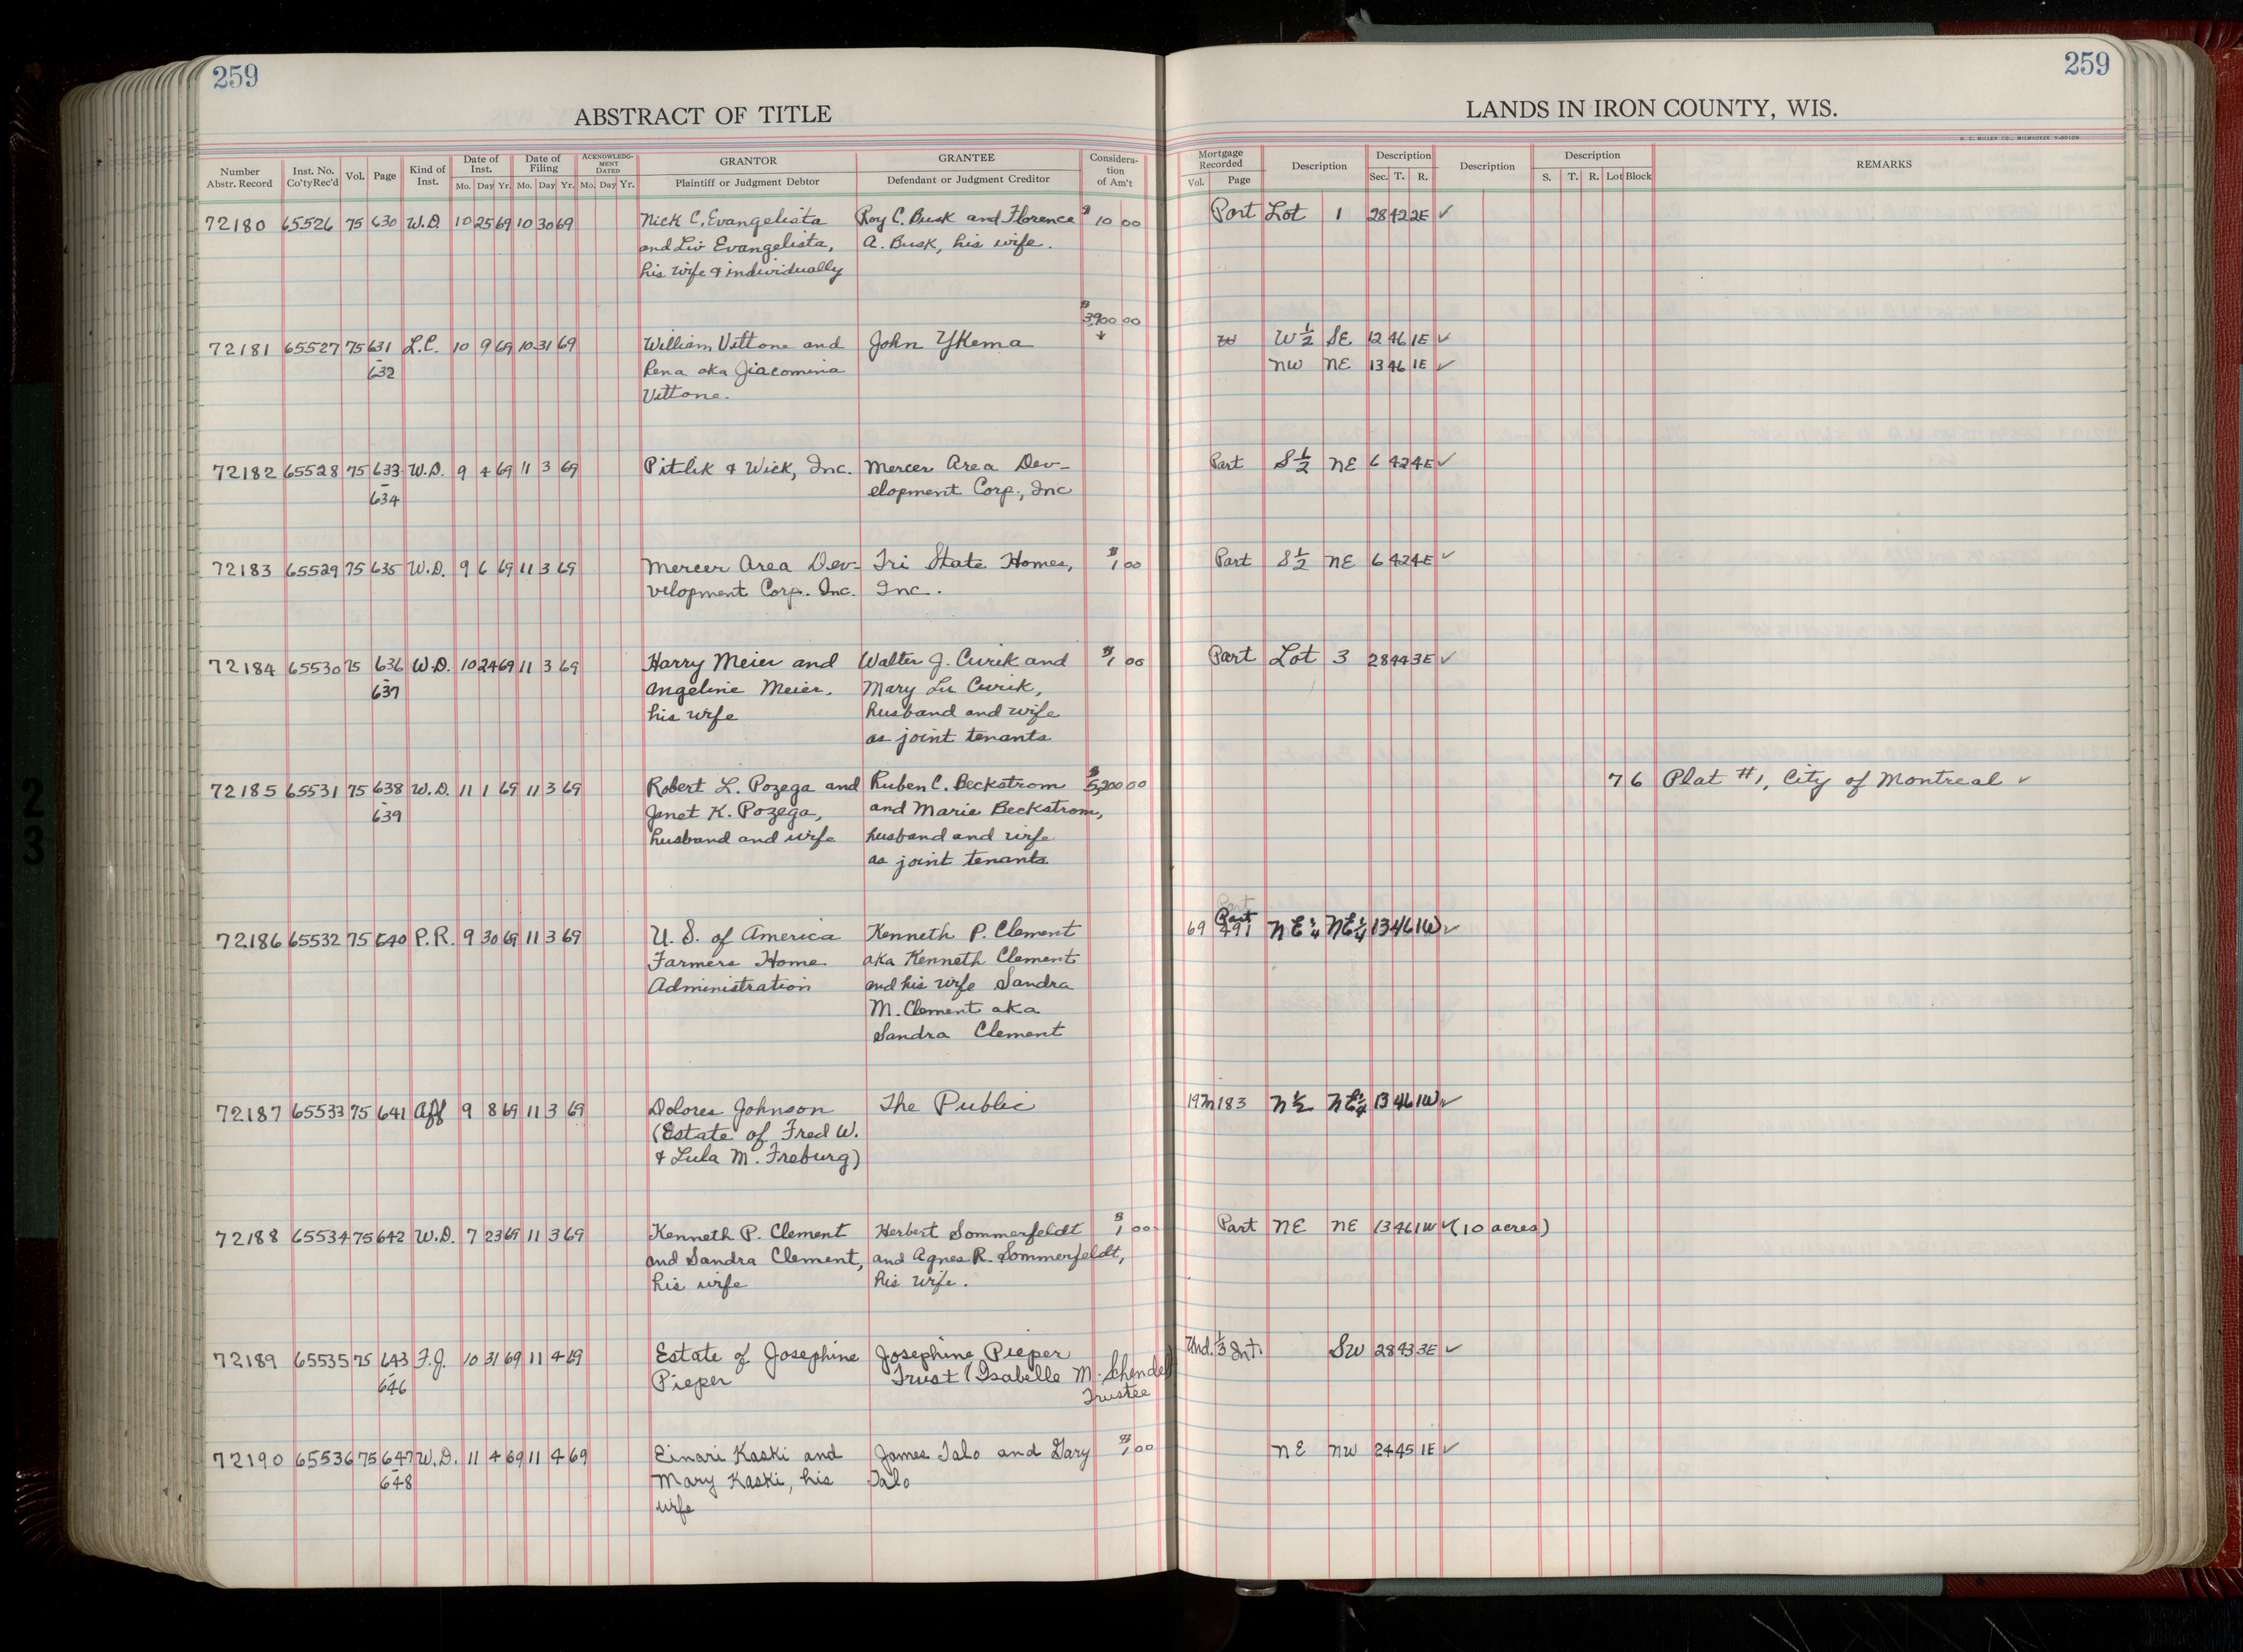 259
ABSTRACT OF TITLE
Number Abstr. Record | Inst. No. Co'ty Rec'd | Vol. | Page | Kind of Inst. | Date of Inst. Mo. Day Yr. | Date of Filing Mo. Day Yr. | ACKNOWLEDGMENT DATED Mo. Day Yr. | GRANTOR Plaintiff or Judgment Debtor | GRANTEE Defendant or Judgment Creditor | Consideration of Am't
72180 65526 75 630 W.D. 10 25 69 10 30 69 Nick C. Evangelista Roy C. Busk and Florence $10 00
and Liv Evangelista, A. Busk, his wife.
his wife & individually
$3900 00
72181 65527 75 631 L.C. 10 9 69 10 31 69 William Vittone and John YKema
632 Rena aka Giacomina
Vittone.
72182 65528 75 633 W.D. 9 4 69 11 3 69 Pitlik & Wick, Inc. Mercer Area Dev-
634 elopment Corp., Inc
72183 65529 75 635 W.D. 9 6 69 11 3 69 Mercer Area Dev- Tri State Homes, $1 00
velopment Corp. Inc. Inc.
72184 65530 75 636 W.D. 10 24 69 11 3 69 Harry Meier and Walter J. Curik and $1 00
637 Angeline Meier, Mary Lu Curik,
his wife husband and wife
as joint tenants
72185 65531 75 638 W.D. 11 1 69 11 3 69 Robert L. Pozega and Ruben C. Beckstrom $5,200 00
639 Janet K. Pozega, and Marie Beckstrom,
husband and wife husband and wife
as joint tenants
72186 65532 75 640 P.R. 9 30 69 11 3 69 U. S. of America Kenneth P. Clement
Farmers Home aka Kenneth Clement
Administration and his wife Sandra
M. Clement aka
Sandra Clement
72187 65533 75 641 Aff 9 8 69 11 3 69 Dolores Johnson The Public
(Estate of Fred W.
& Lula M. Freburg)
72188 65534 75 642 W.D. 7 23 69 11 3 69 Kenneth P. Clement Herbert Sommerfeldt $1 00
and Sandra Clement, and Agnes R. Sommerfeldt,
his wife his wife.
72189 65535 75 643 F.J. 10 31 69 11 4 69 Estate of Josephine Josephine Pieper
646 Pieper Trust (Isabelle M. Schendel
Trustee
72190 65536 75 647 W.D. 11 4 69 11 4 69 Einari Kaski and James Talo and Gary $1 00
648 Mary Kaski, his Talo
wife
259
LANDS IN IRON COUNTY, WIS.
H. C. MILLER CO., MILWAUKEE
Mortgage Recorded Vol. Page | Description | Description Sec. T. R. | Description | Description S. T. R. Lot Block | REMARKS
Part Lot 1 28 42 2E ✓
W 1/2 SE 12 46 1E ✓
NW NE 13 46 1E ✓
Part S 1/2 NE 6 42 4E ✓
Part S 1/2 NE 6 42 4E ✓
Part Lot 3 28 44 3E ✓
7 6 Plat #1, City of Montreal ✓
Part
69 491 NE 1/4 NE 1/4 13 46 1W ✓
19M 183 N 1/2 NE 1/4 13 46 1W ✓
Part NE NE 13 46 1W ✓ (10 acres)
Und. 1/3 Int. SW 28 43 3E ✓
NE NW 24 45 1E ✓